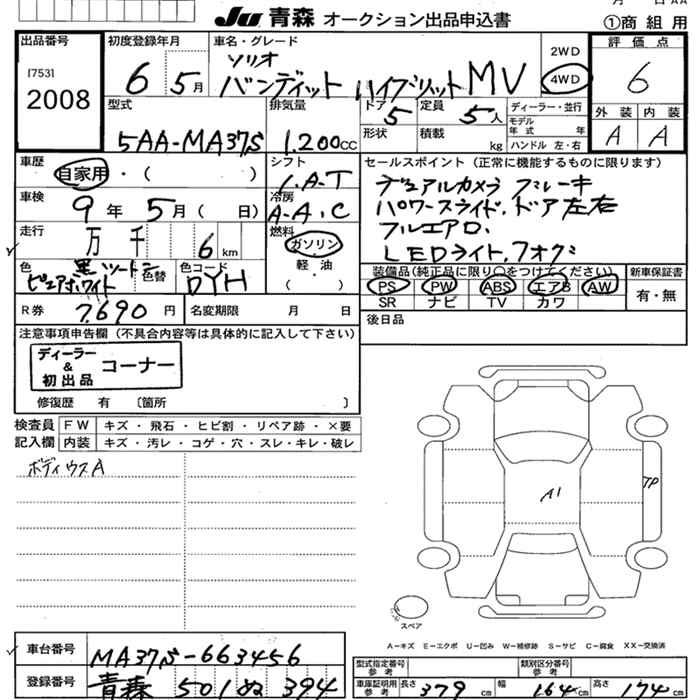 JU 青森 オークション出品申込書
①商 組 用
出品番号
17531
2008
初度登録年月
6 5月
車名・グレード
ソリオ
バンディット ハイブリット MV
2WD
4WD
評 価 点
6
型式
5AA-MA37S
排気量
1.200cc
ドア
5
定員
5人
形状
積載
kg
ディーラー・並行
モデル
年 式 年
ハンドル 左・右
外 装
内 装
A
A
車歴
自家用・( )
シフト
I.A-T
セールスポイント (正常に機能するものに限ります)
デュアルカメラ ブレーキ
パワースライド.ドア左右
フルエアロ.
LEDライト,フォグ
車検
9年 5月( 日)
冷房
A-A.C
走行
万 千 6 km
燃料
ガソリン
軽・油
( )
色
黒 ツートン
ピュアホワイト
色替
色コード
DYH
装備品(純正品に限り○をつけてください)
PS PW ABS エアB AW
SR ナビ TV カワ
新車保証書
有・無
R券
7,690円
名変期限 月 日
後日品
注意事項申告欄 (不具合内容等は具体的に記入して下さい)
ディーラー
&
初出品
コーナー
修復歴 有 〔箇所 〕
検査員
記入欄
FW
キズ ・ 飛石 ・ ヒビ割 ・ リペア跡 ・ ×要
内装
キズ・汚レ・コゲ・穴・スレ・キレ・破レ
ボディウスA
A1
TP
スペア
A-キズ E-エクボ U-凹み W-補修跡 S-サビ C-腐食 XX-交換済
車台番号
MA37S-663456
登録番号
青森 501 ぬ 394
型式指定番号
参 考
類別区分番号
参 考
車庫証明用
参 考
長さ 379 cm
幅 164 cm
高さ 174 cm